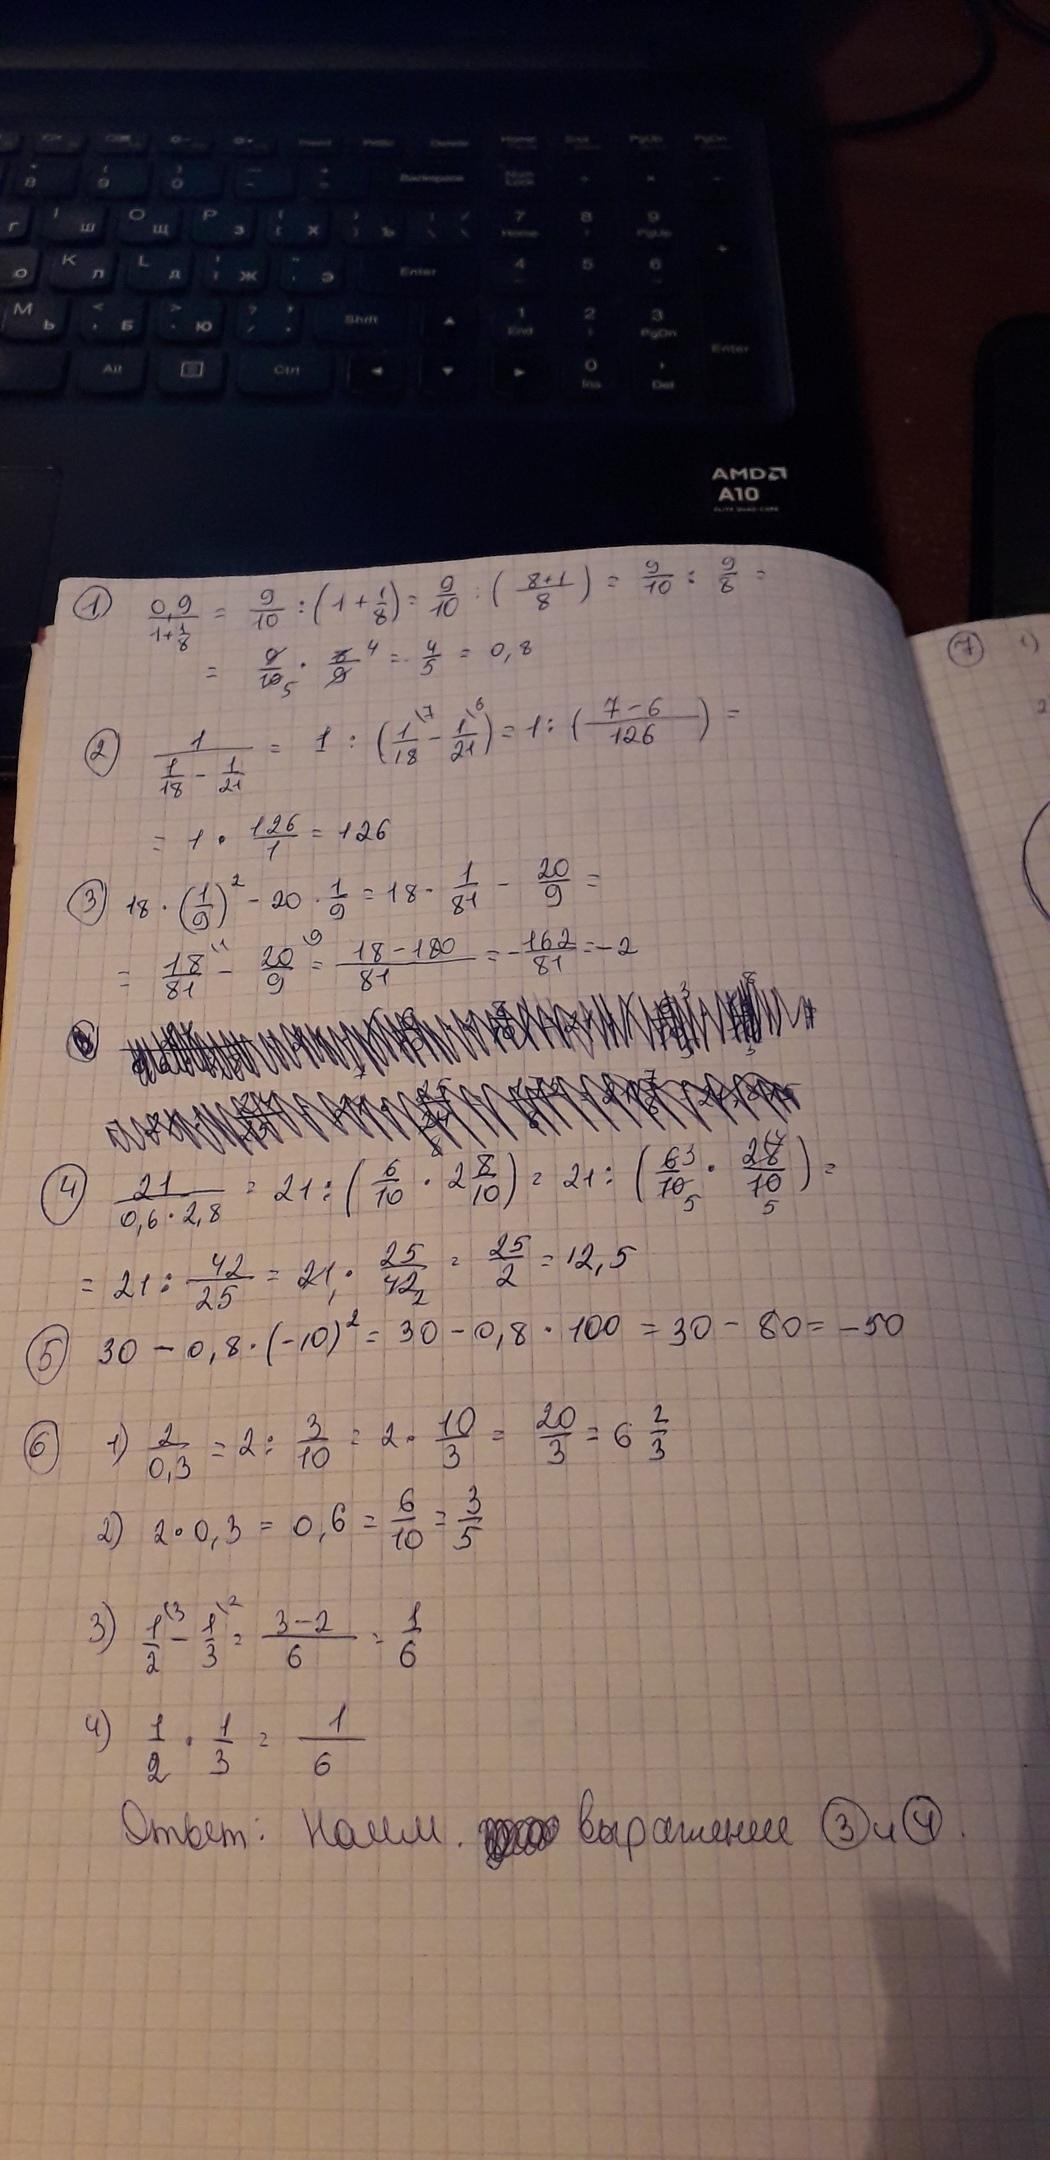 Backspace
Num Lock
7 Home
8
9 PgUp
Enter
4
5
6
Shift
1 End
2
3 PgDn
Enter
Alt
Ctrl
0 Ins
Del
AMD
A10
① 0,9/(1+1/8) = 9/10 : (1 + 1/8) = 9/10 : ((8+1)/8) = 9/10 : 9/8 =
= 9/10 5 · 8/9 4 = 4/5 = 0,8
② 1/(1/18 − 1/21) = 1 : (1/18 \7 − 1/21 \6) = 1 : ((7−6)/126) =
= 1 · 126/1 = 126
③ 18 · (1/9)² − 20 · 1/9 = 18 · 1/81 − 20/9 =
= 18/81 \1 − 20/9 \9 = (18−180)/81 = −162/81 = −2
④ 21/(0,6 · 2,8) = 21 : (6/10 · 2 8/10) = 21 : (6 3/10 5 · 28/10 5) =
= 21 : 42/25 = 21 1 · 25/42 2 = 25/2 = 12,5
⑤ 30 − 0,8 · (−10)² = 30 − 0,8 · 100 = 30 − 80 = −50
⑥ 1) 2/0,3 = 2 : 3/10 = 2 · 10/3 = 20/3 = 6 2/3
2) 2 · 0,3 = 0,6 = 6/10 = 3/5
3) 1/2 \3 − 1/3 \2 = (3−2)/6 = 1/6
4) 1/2 · 1/3 = 1/6
Ответ: Наим. выражение ③ и ④.
⑦ 1)
2